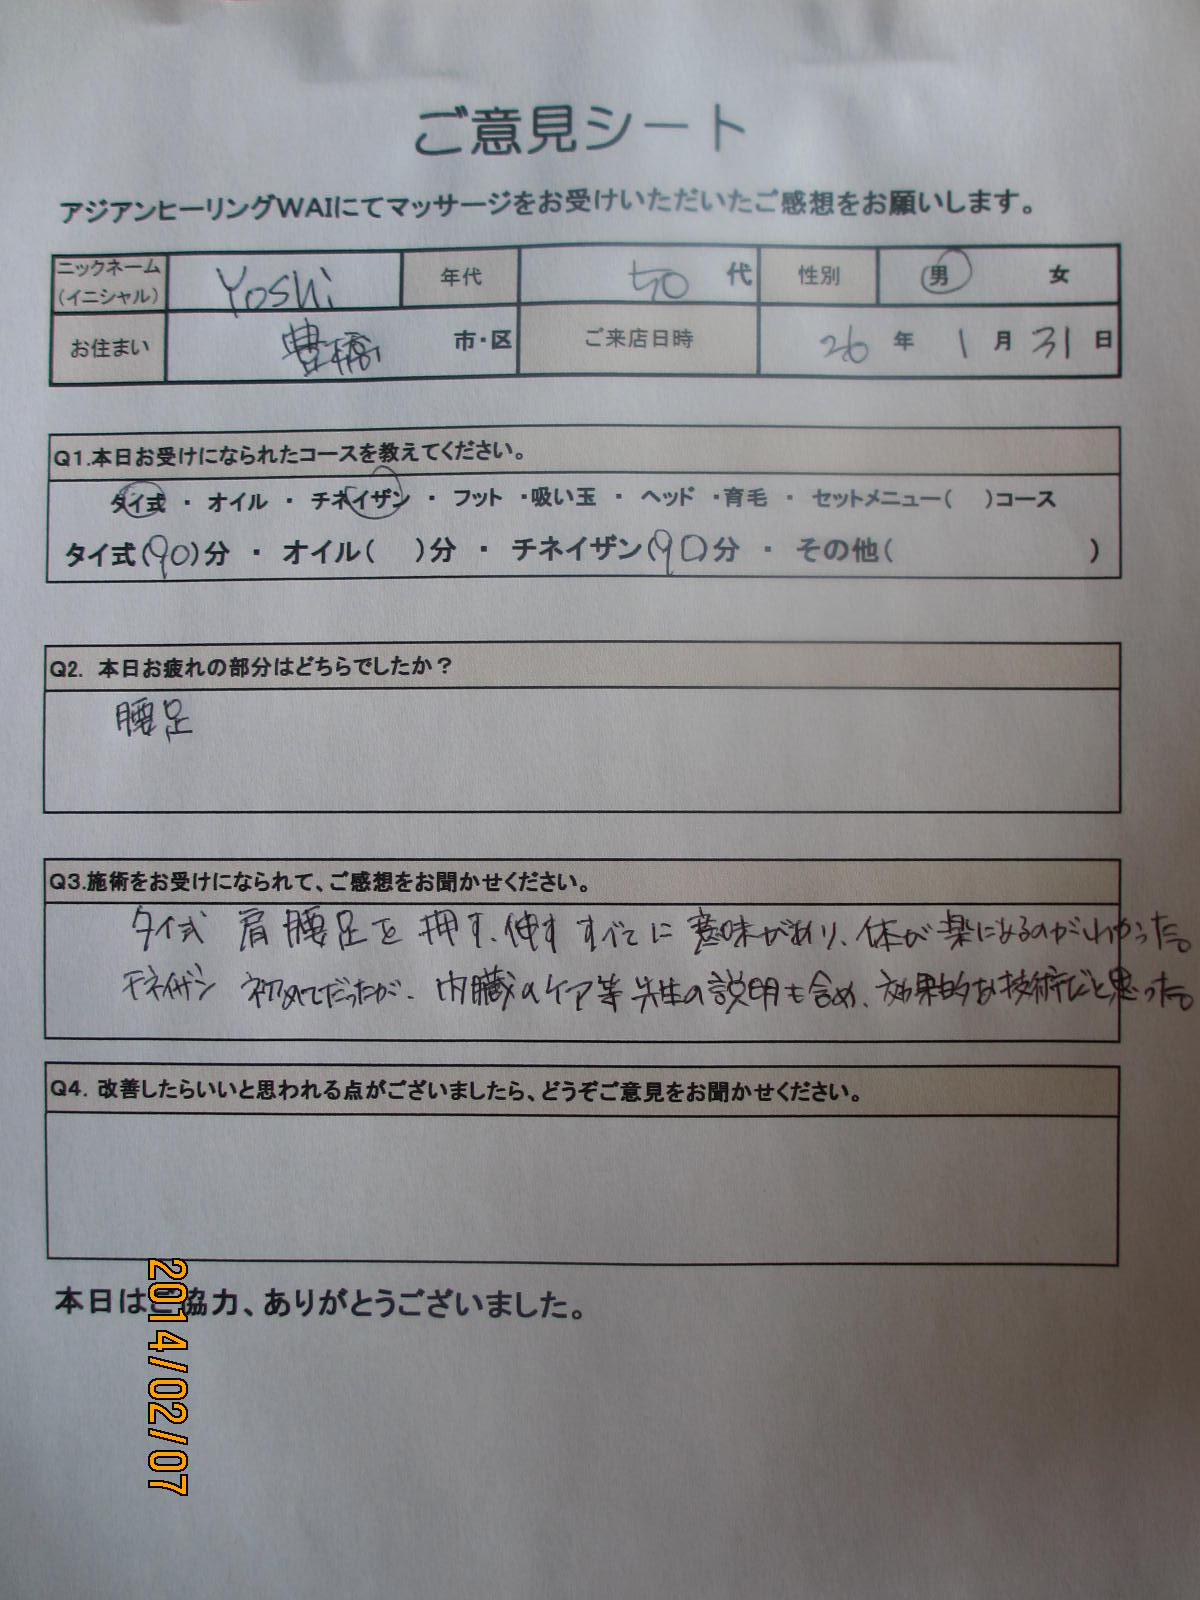 ご意見シート
アジアンヒーリングWAIにてマッサージをお受けいただいたご感想をお願いします。
ニックネーム(イニシャル) Yoshi 年代 50 代 性別 男 女
お住まい 豊橋 市・区 ご来店日時 26 年 1 月 31 日
Q1.本日お受けになられたコースを教えてください。
タイ式 ・ オイル ・ チネイザン ・ フット ・吸い玉 ・ ヘッド ・育毛 ・ セットメニュー( )コース
タイ式(90)分 ・ オイル( )分 ・ チネイザン(90)分 ・ その他( )
Q2. 本日お疲れの部分はどちらでしたか？
腰足
Q3.施術をお受けになられて、ご感想をお聞かせください。
タイ式 肩腰足を押す、伸す すべてに意味があり、体が楽になるのがわかった。
チネイザン 初めてだったが、内臓のケア等 先生の説明も含め、効果的な技術だと思った。
Q4. 改善したらいいと思われる点がございましたら、どうぞご意見をお聞かせください。
本日はご協力、ありがとうございました。
2014/02/07